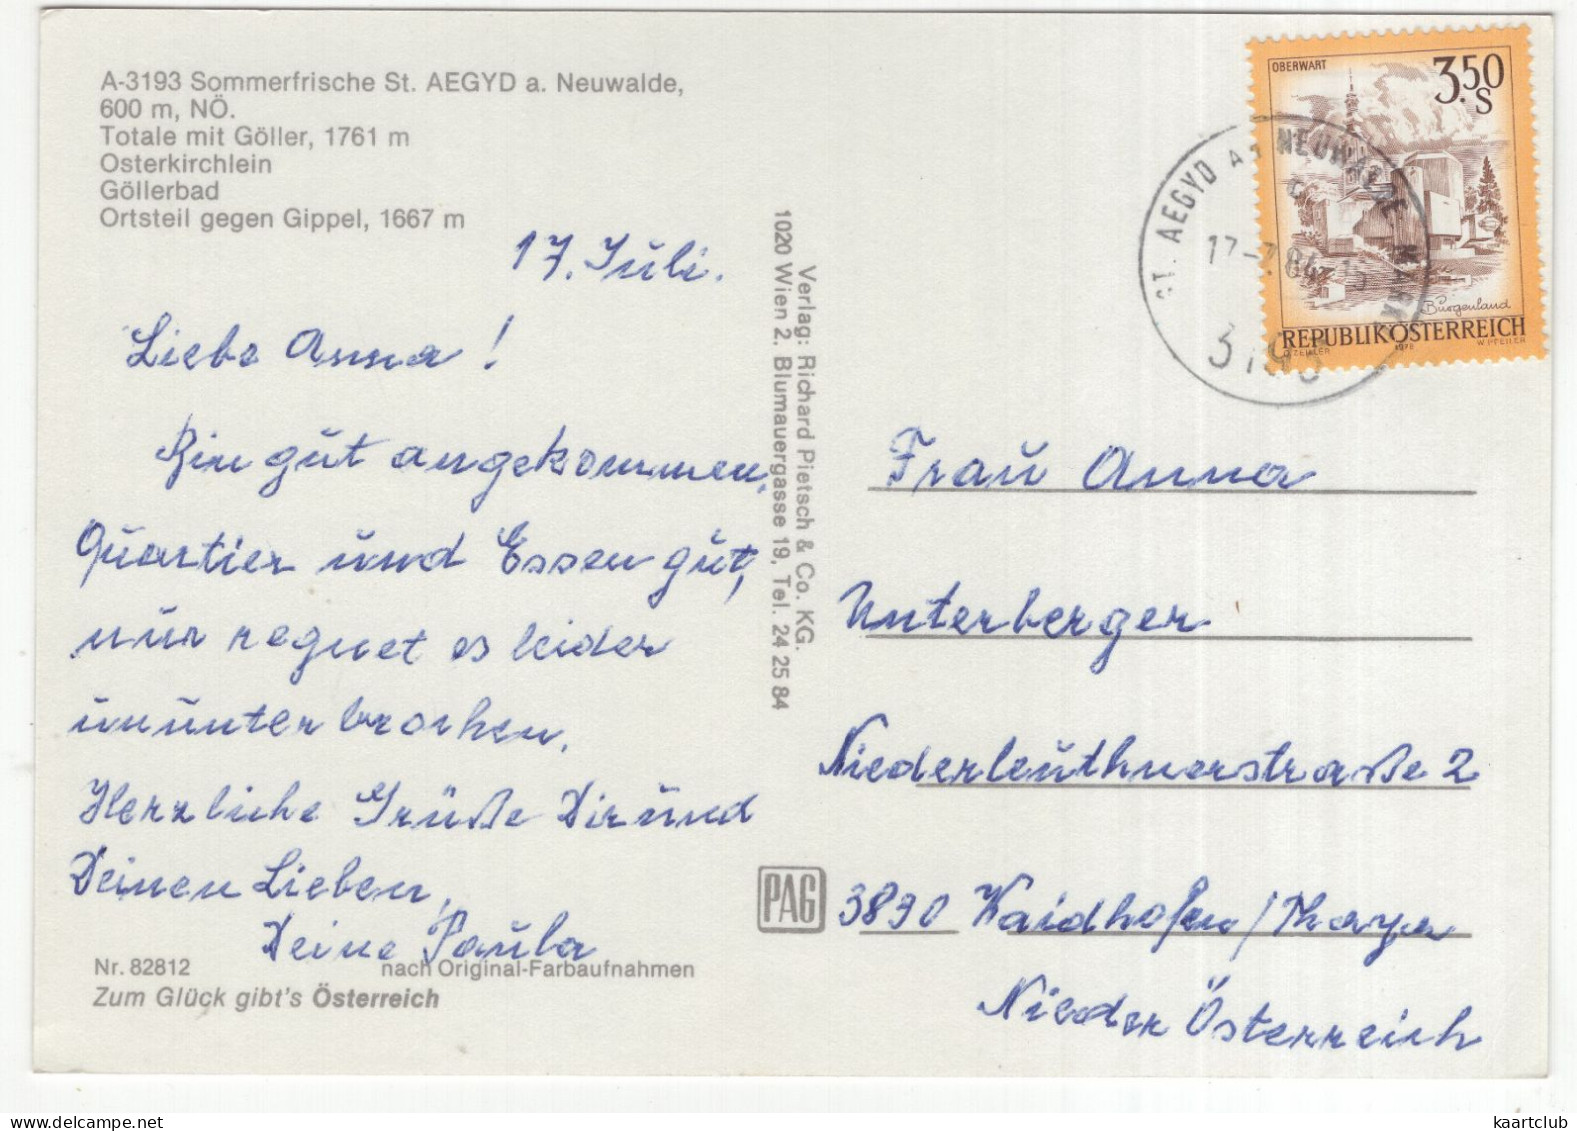 A-3193 Sommerfrische St. AEGYD a. Neuwalde,
600 m, NÖ.
Totale mit Göller, 1761 m
Osterkirchlein
Göllerbad
Ortsteil gegen Gippel, 1667 m
17. Juli.
Liebe Anna!
Bin gut angekommen,
Quartier und Essen gut,
nur regnet es leider
ununterbrochen.
Herzliche Grüße Dir und
Deinen Lieben,
Deine Paula
Nr. 82812 nach Original-Farbaufnahmen
Zum Glück gibt's Österreich
Verlag: Richard Pietsch & Co. KG.
1020 Wien 2. Blumauergasse 19, Tel. 24 25 84
PAG
OBERWART
3.50
S
Burgenland
REPUBLIK ÖSTERREICH
O. ZEILLER 1978 W. PFEILER
ST. AEGYD AM NEUWALDE
17.-7.84
Frau Anna
Unterberger
Niederleuthnerstraße 2
3830 Waidhofen/Thaya
Nieder Österreich
kaartclub